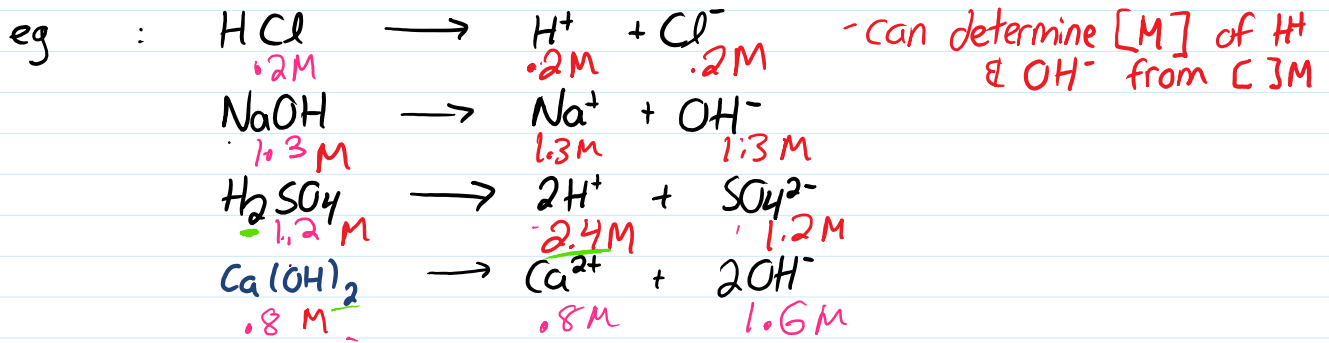 eg : HCl → H⁺ + Cl⁻ -can determine [M] of H⁺
.2M .2M .2M & OH⁻ from [ ]M
NaOH → Na⁺ + OH⁻
1.3 M 1.3M 1.3 M
H₂SO₄ → 2H⁺ + SO₄²⁻
1.2 M 2.4M 1.2M
Ca(OH)₂ → Ca²⁺ + 2OH⁻
.8 M .8M 1.6M